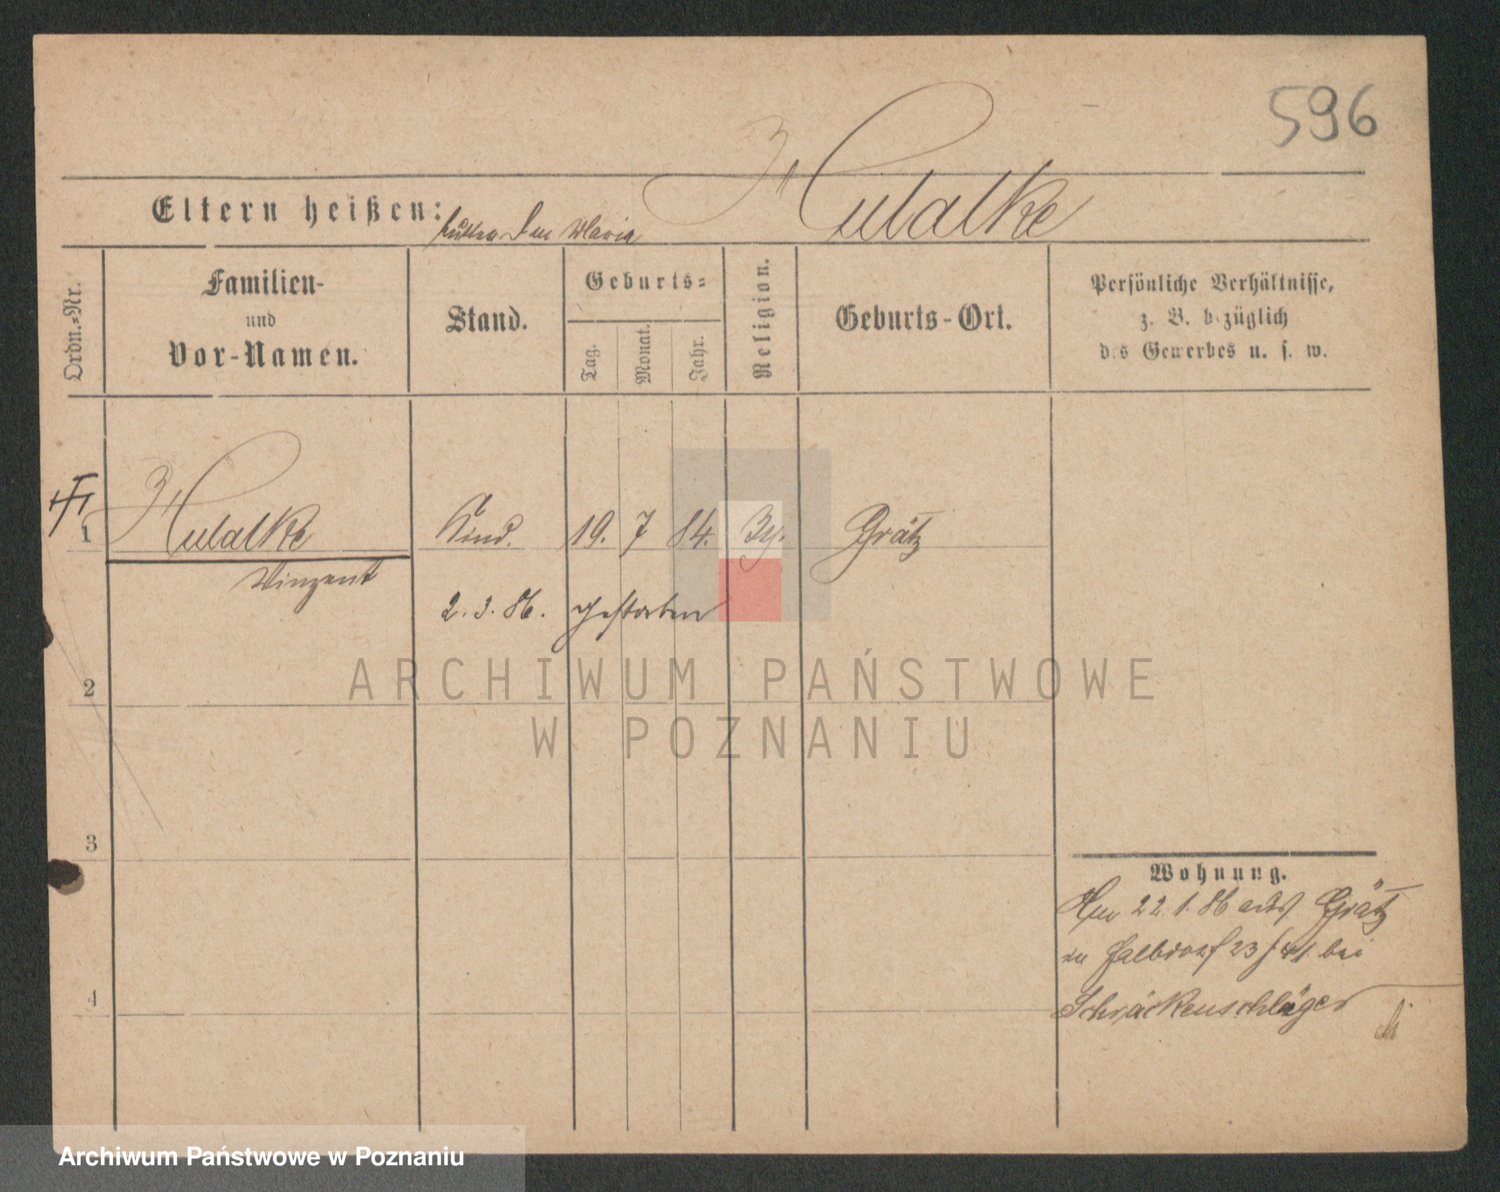 596
Hulalke
Eltern heißen:
Maria
Ordn.-Nr.
Familien-
und
Vor-Namen.
Stand.
Geburts-
Tag.
Monat.
Jahr.
Religion.
Geburts-Ort.
Persönliche Verhältnisse,
z. B. bezüglich
des Gewerbes u. s. w.
1
Hulalke
Kind.
19. 7 84.
Grätz
Vinzent
2. 3. 86. gestorben
2
ARCHIWUM PAŃSTWOWE
W POZNANIU
3
Wohnung.
22. 1. 86 aus Grätz
4
23/41 bei
Schrackenschläger
Archiwum Państwowe w Poznaniu